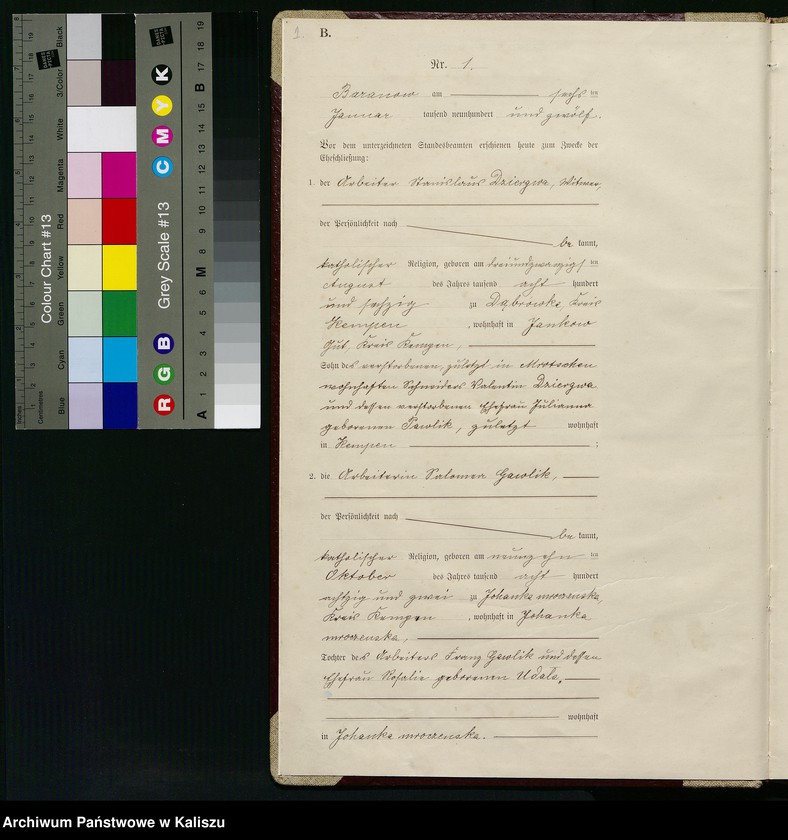 1.
B.
Nr. 1.
Baranow am sechs ten
Januar tausend neunhundert und zwölf.
Vor dem unterzeichneten Standesbeamten erschienen heute zum Zwecke der
Eheschließung:
1. der Arbeiter Stanislaus Dziergwa, Witwer,
der Persönlichkeit nach
be kannt,
katholischer Religion, geboren am dreiundzwanzigs ten
August des Jahres tausend acht hundert
und sechzig zu Dąbrowka, Kreis
Kempen, wohnhaft in Jankow
Gut, Kreis Kempen,
Sohn des verstorbenen, zuletzt in Mrotschen
wohnhaften Schneiders Valentin Dziergwa
und dessen verstorbenen Ehefrau Julianna
geborenen Pawlik, zuletzt wohnhaft
in Kempen ;
2. die Arbeiterin Salomea Gawlik,
der Persönlichkeit nach
be kannt,
katholischer Religion, geboren am neunzehn ten
Oktober des Jahres tausend acht hundert
achtzig und zwei zu Johanka mroczenska,
Kreis Kempen, wohnhaft in Johanka
mroczenska,
Tochter des Arbeiters Franz Gawlik und dessen
Ehefrau Rosalie geborenen Udala,
wohnhaft
in Johanka mroczenska.
Colour Chart #13
Blue Cyan Green Yellow Red Magenta White 3/Color Black
Inches
Centimetres
Grey Scale #13
R G B C M Y K
A 1 2 3 4 5 6 M 8 9 10 11 12 13 14 15 B 17 18 19
Archiwum Państwowe w Kaliszu